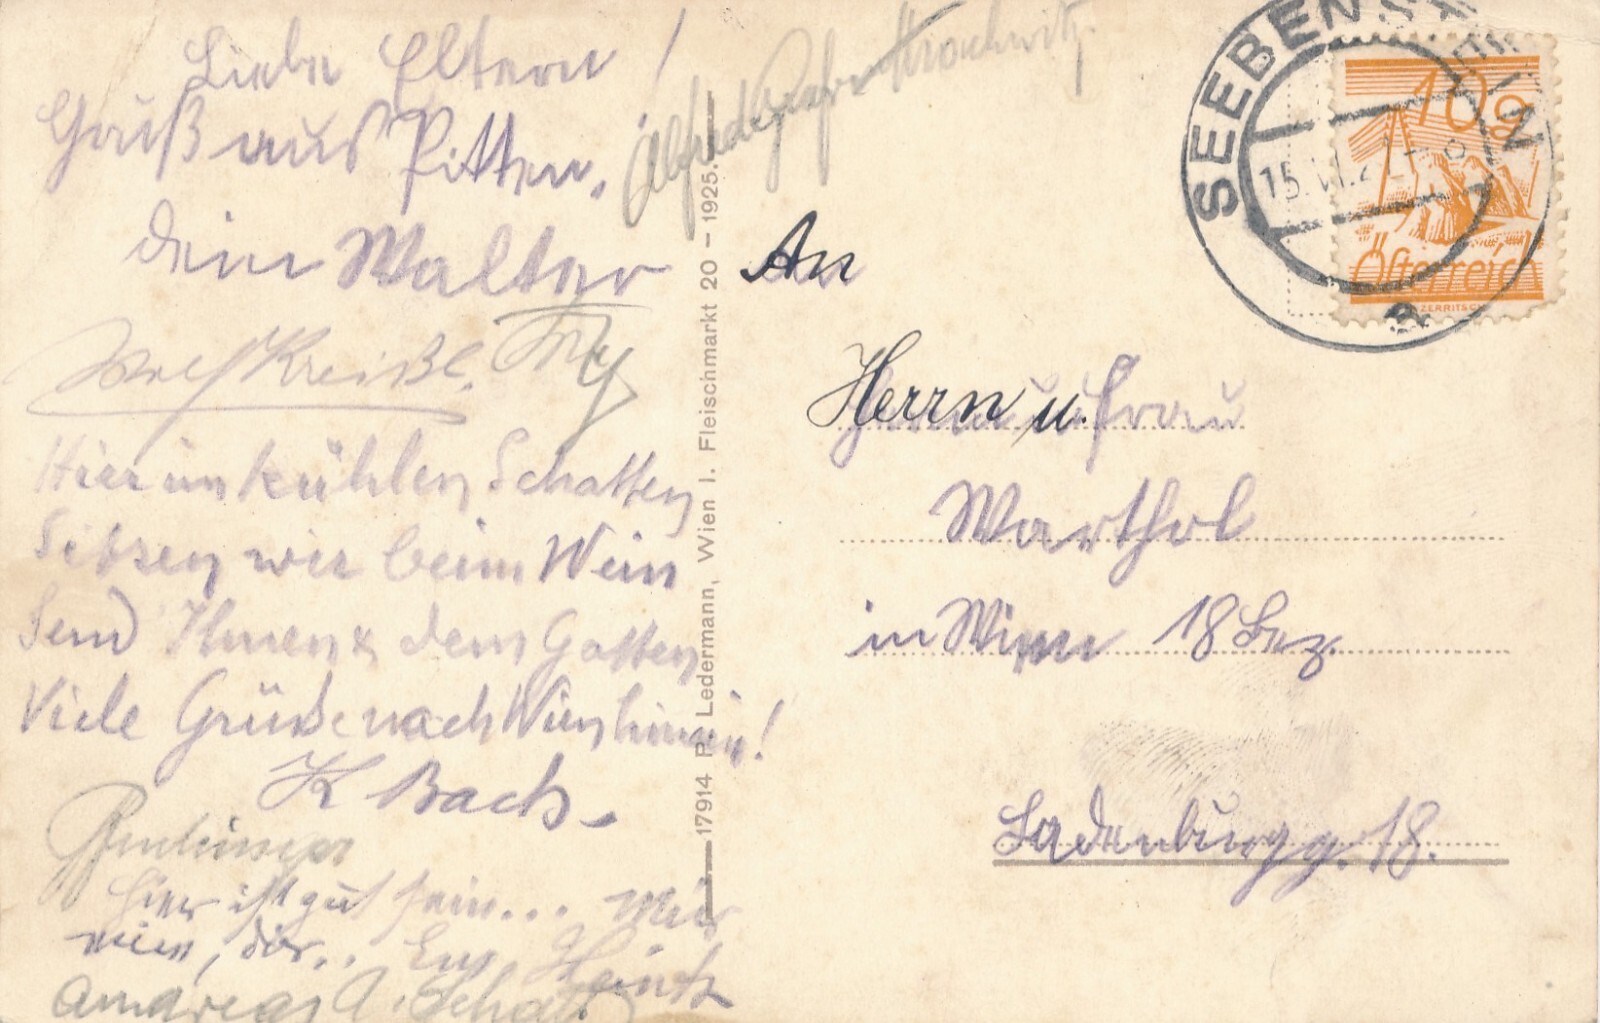 Liebe Eltern!
Gruß aus Pitten.
Dein Walter
Alfred
Wolf Kreißl.
Hier im kühlen Schatten
Sitzen wir beim Wein
Send Ihnen & dem Gatten
Viele Grüße nach Wien hinein!
K Bach.
hier ist gut sein... Mir
mir, dir.. Eu
Andreas A.
17914 P. Ledermann, Wien I. Fleischmarkt 20 – 1925.
SEEBENSTEIN
15.VI.2
a
10g
Österreich
An
Herrn u. Frau
Warthol
in Wien 18 Bez.
Ladenburgg. 18.